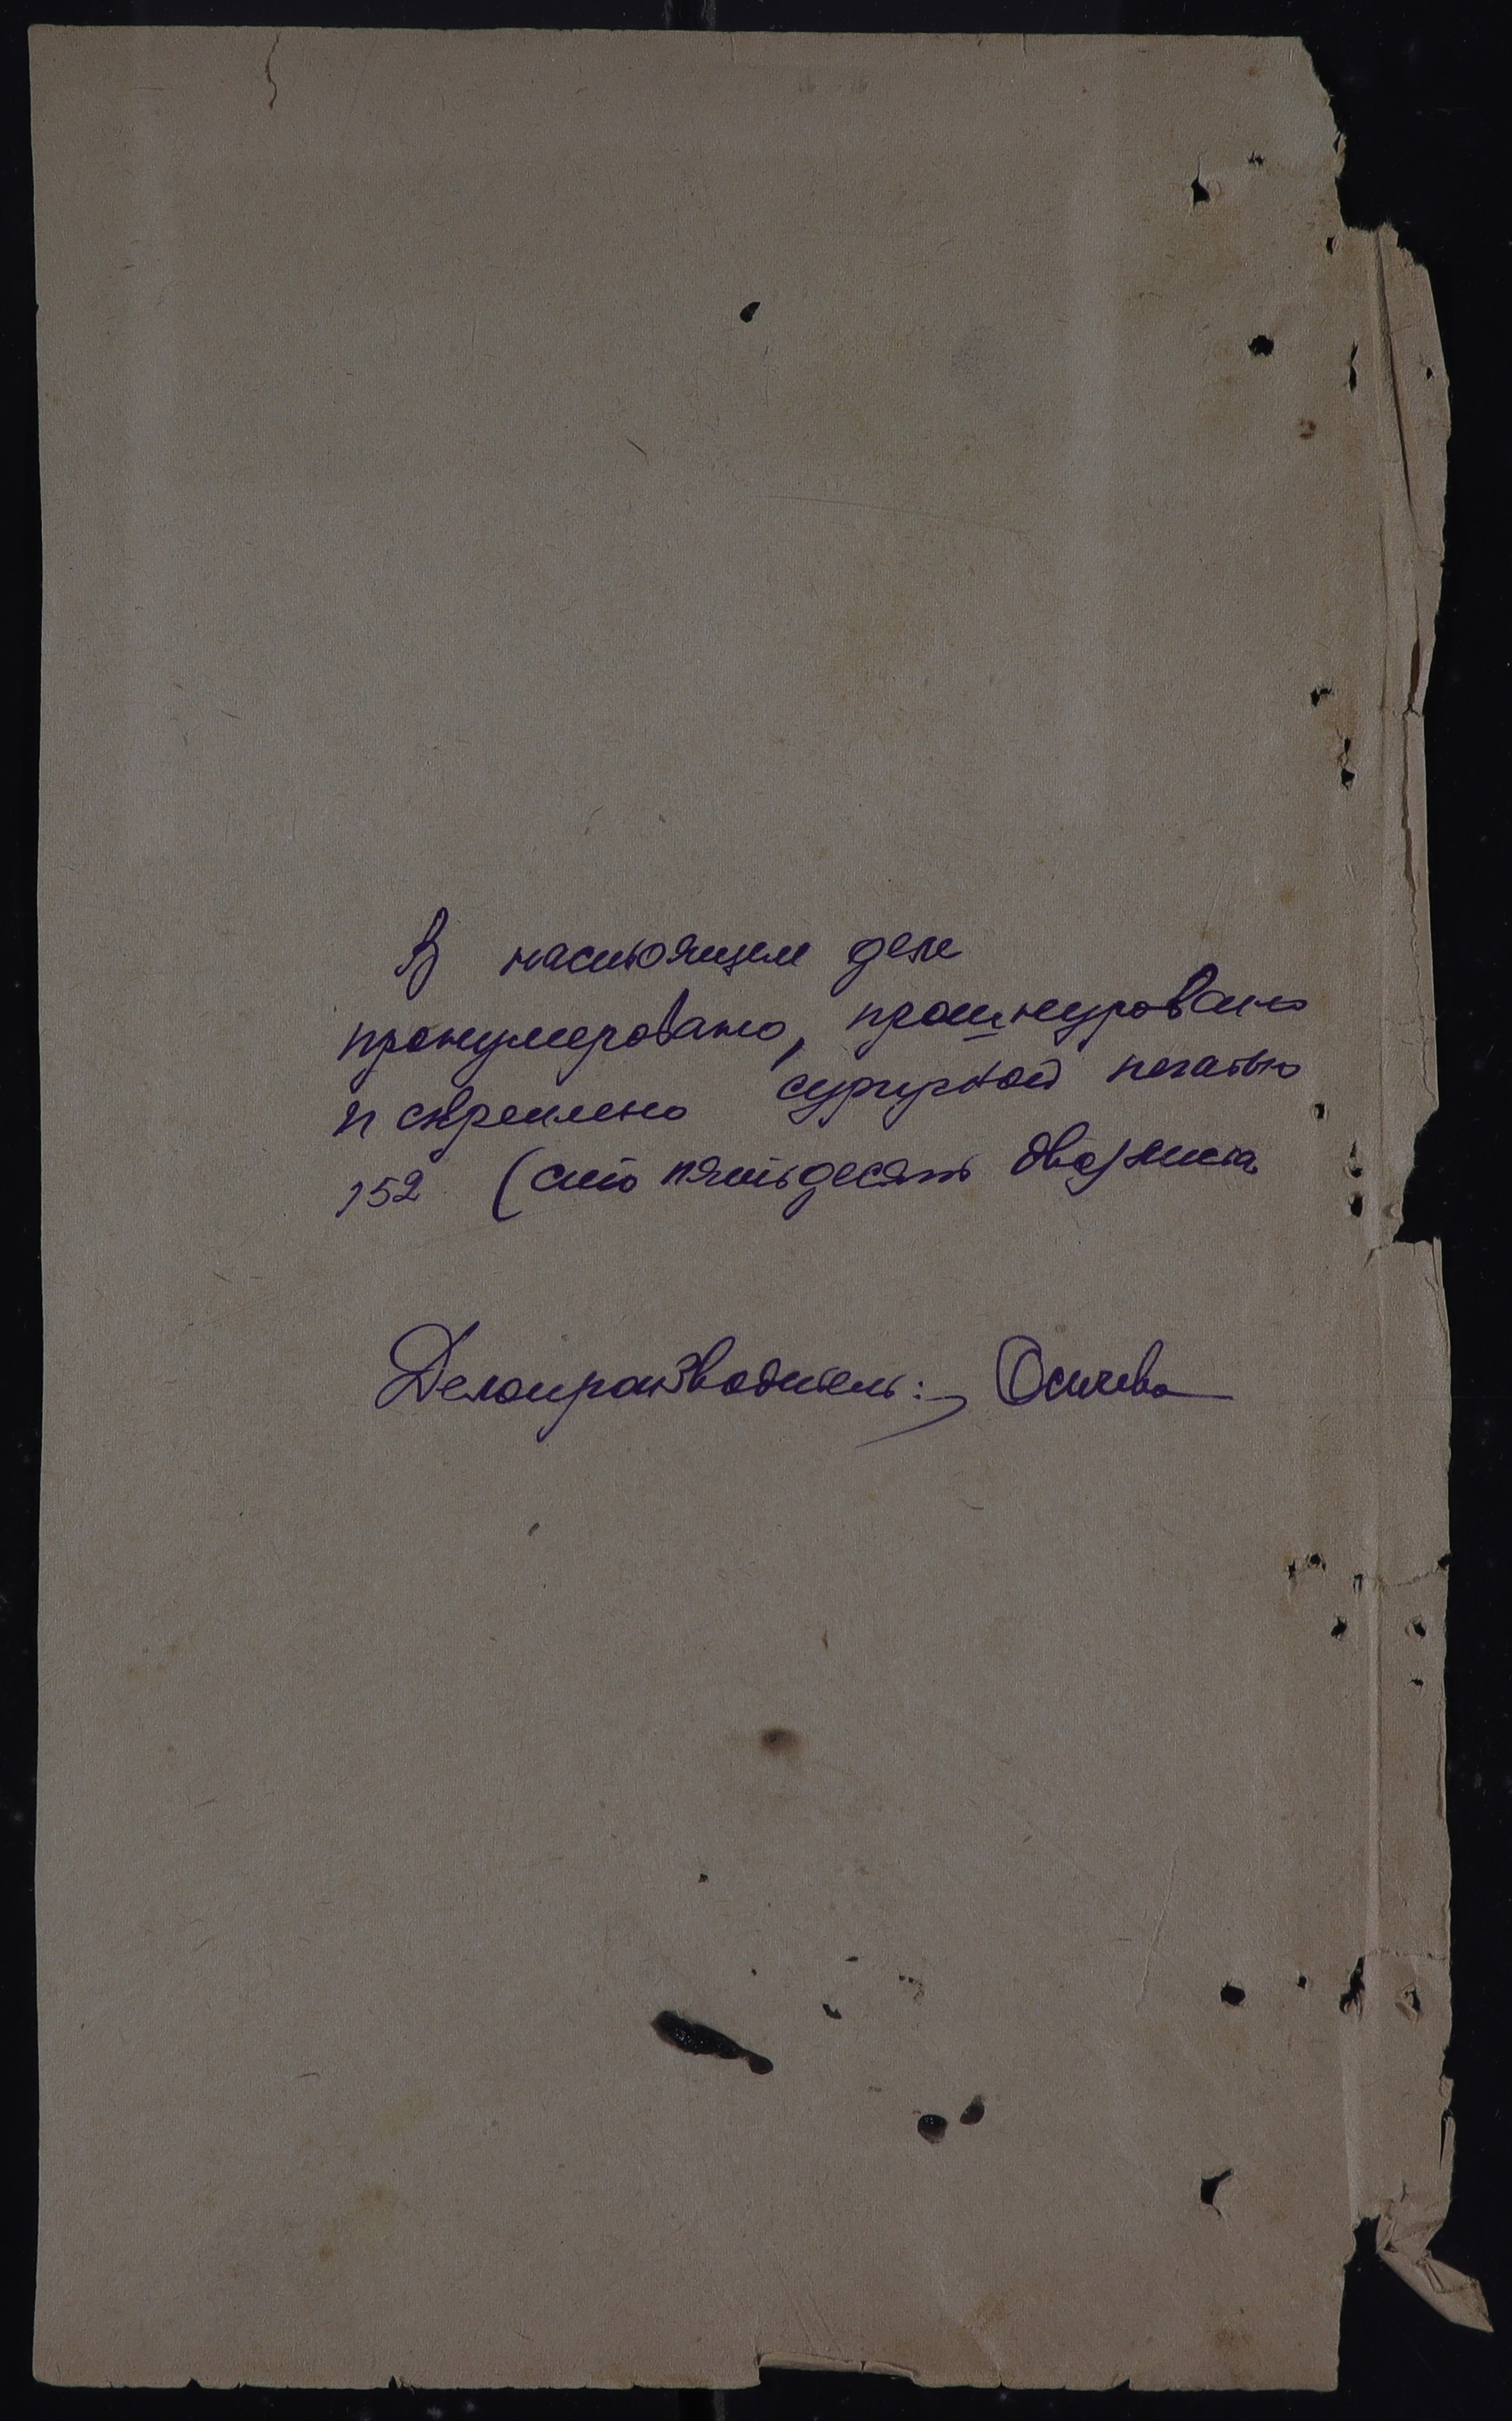 В настоящем деле
пронумеровано, прошнуровано
и скреплено сургучной печатью
152 (сто пятьдесят два) листа
Делопроизводитель: